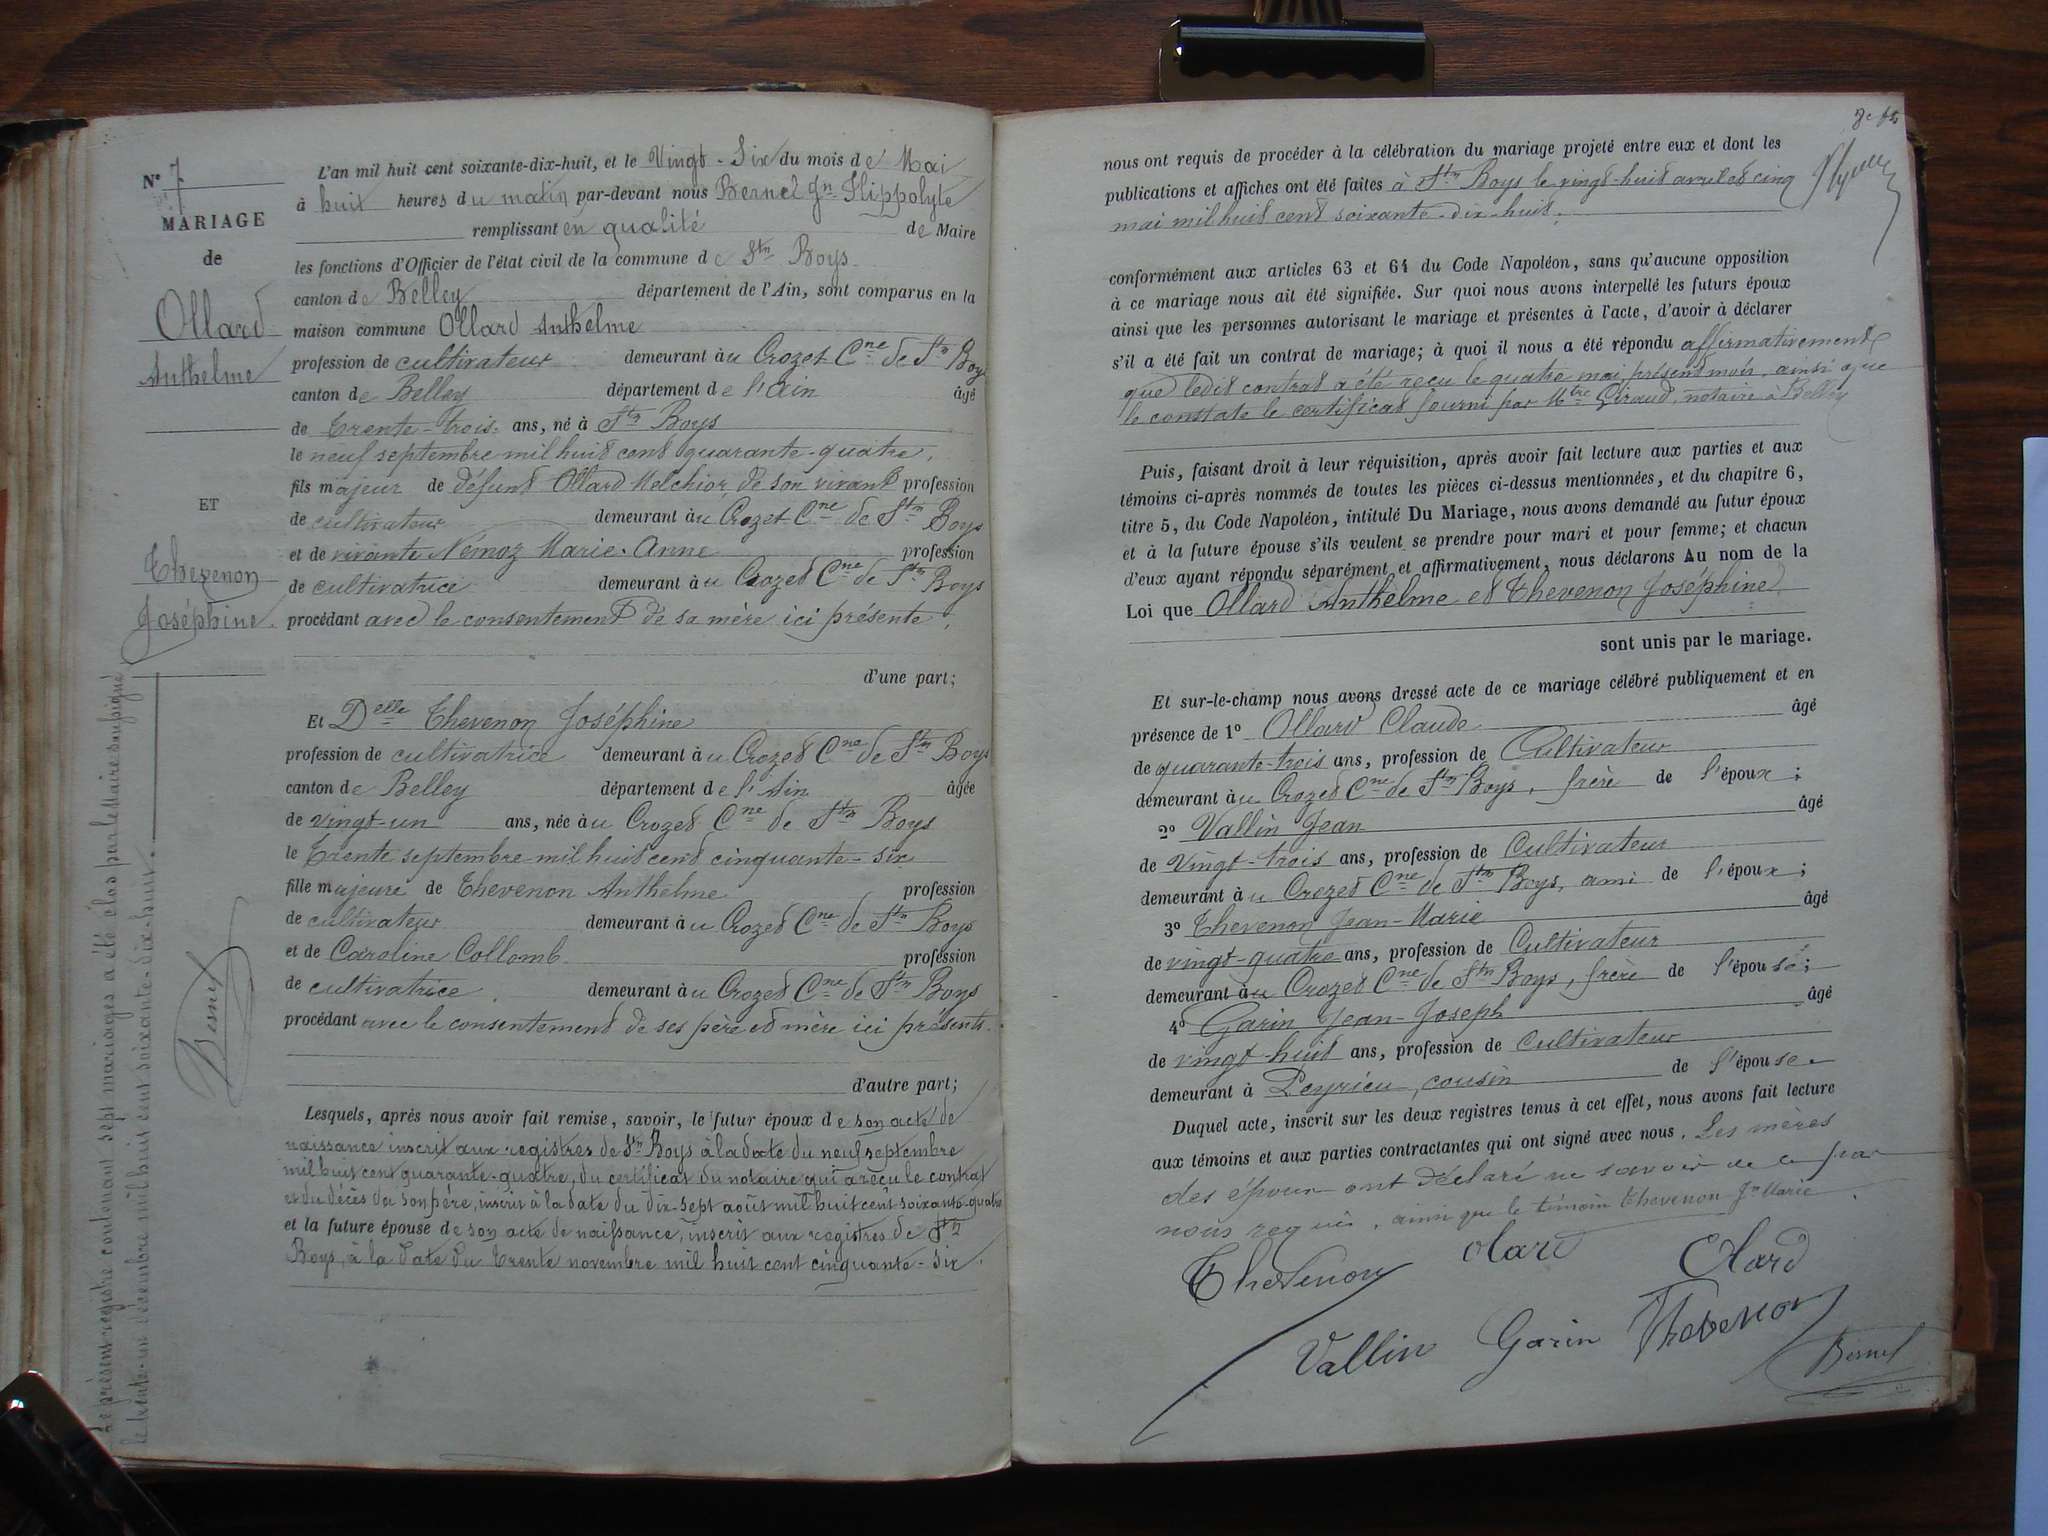 N° 7
MARIAGE
de
Ollard
Anthelme
ET
Thevenon
Joséphine.
Le présent registre contenant sept mariages a été clos par le Maire soussigné
le trente-un décembre mil huit cent soixante-dix-huit.
Bernel
L'an mil huit cent soixante-dix-huit, et le Vingt-Six du mois de Mai
à huit heures du matin par-devant nous Bernel Jn Hippolyte
remplissant en qualité de Maire
les fonctions d'Officier de l'état civil de la commune de Stn Boys
canton de Belley département de l'Ain, sont comparus en la
maison commune Ollard Anthelme
profession de cultivateur demeurant au Crozet Cne de Stn Boys
canton de Belley département de l'Ain âgé
de Trente-trois ans, né à Stn Boys
le neuf septembre mil huit cent quarante-quatre,
fils majeur de défunt Ollard Melchior, de son vivant profession
de cultivateur demeurant au Crozet Cne de Stn Boys
et de vivante Némoz Marie-Anne profession
de cultivatrice demeurant au Crozet Cne de Stn Boys
procédant avec le consentement de sa mère ici présente,
d'une part;
Et Delle Thevenon Joséphine
profession de cultivatrice demeurant au Crozet Cne de Stn Boys
canton de Belley département de l'Ain âgée
de vingt-un ans, née au Crozet Cne de Stn Boys
le Trente septembre mil huit cent cinquante-six
fille majeure de Thevenon Anthelme profession
de cultivateur demeurant au Crozet Cne de Stn Boys
et de Caroline Collomb profession
de cultivatrice demeurant au Crozet Cne de Stn Boys
procédant avec le consentement de ses père et mère ici présents.
d'autre part;
Lesquels, après nous avoir fait remise, savoir, le futur époux de son acte de
naissance inscrit aux registres de Stn Boys à la date du neuf septembre
mil huit cent quarante-quatre, du certificat du notaire qui a reçu le contrat
et du décès de son père, inscrit à la date du dix-sept août mil huit cent soixante-quatre
et la future épouse de son acte de naissance, inscrit aux registres de Stn
Boys, à la date du Trente novembre mil huit cent cinquante-six.
nous ont requis de procéder à la célébration du mariage projeté entre eux et dont les
publications et affiches ont été faites à Stn Boys le vingt-huit avril et cinq
mai mil huit cent soixante-dix-huit.
conformément aux articles 63 et 64 du Code Napoléon, sans qu'aucune opposition
à ce mariage nous ait été signifiée. Sur quoi nous avons interpellé les futurs époux
ainsi que les personnes autorisant le mariage et présentes à l'acte, d'avoir à déclarer
s'il a été fait un contrat de mariage; à quoi il nous a été répondu affirmativement
que ledit contrat a été reçu le quatre mai présent mois, ainsi que
le constate le certificat fourni par Mtre Giraud, notaire à Belley
Puis, faisant droit à leur réquisition, après avoir fait lecture aux parties et aux
témoins ci-après nommés de toutes les pièces ci-dessus mentionnées, et du chapitre 6,
titre 5, du Code Napoléon, intitulé Du Mariage, nous avons demandé au futur époux
et à la future épouse s'ils veulent se prendre pour mari et pour femme; et chacun
d'eux ayant répondu séparément et affirmativement, nous déclarons Au nom de la
Loi que Ollard Anthelme et Thevenon Joséphine
sont unis par le mariage.
Et sur-le-champ nous avons dressé acte de ce mariage célébré publiquement et en
présence de 1° Ollard Claude âgé
de quarante-trois ans, profession de Cultivateur
demeurant au Crozet Cne de Stn Boys, frère de l'époux;
2° Vallin Jean âgé
de Vingt-trois ans, profession de Cultivateur
demeurant au Crozet Cne de Stn Boys, ami de l'époux;
3° Thevenon Jean-Marie âgé
de vingt-quatre ans, profession de Cultivateur
demeurant au Crozet Cne de Stn Boys, frère de l'épouse;
4° Garin Jean-Joseph âgé
de vingt-huit ans, profession de Cultivateur
demeurant à Peyrieu, cousin de l'épouse.
Duquel acte, inscrit sur les deux registres tenus à cet effet, nous avons fait lecture
aux témoins et aux parties contractantes qui ont signé avec nous. Les mères
des époux ont déclaré ne savoir de ce par
nous requis, ainsi que le témoin Thevenon Jn Marie.
Thevenon olard Olard
Vallin Garin Thevenon
Bernel